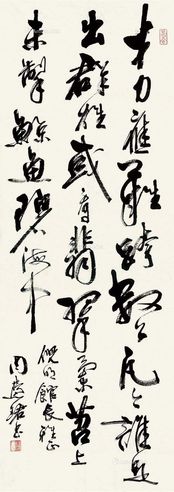 才力應難跨數公凡今誰是
出群雄或看翡翠蘭苕上
未掣鯨魚碧海中
館長雅正
周慧珺书